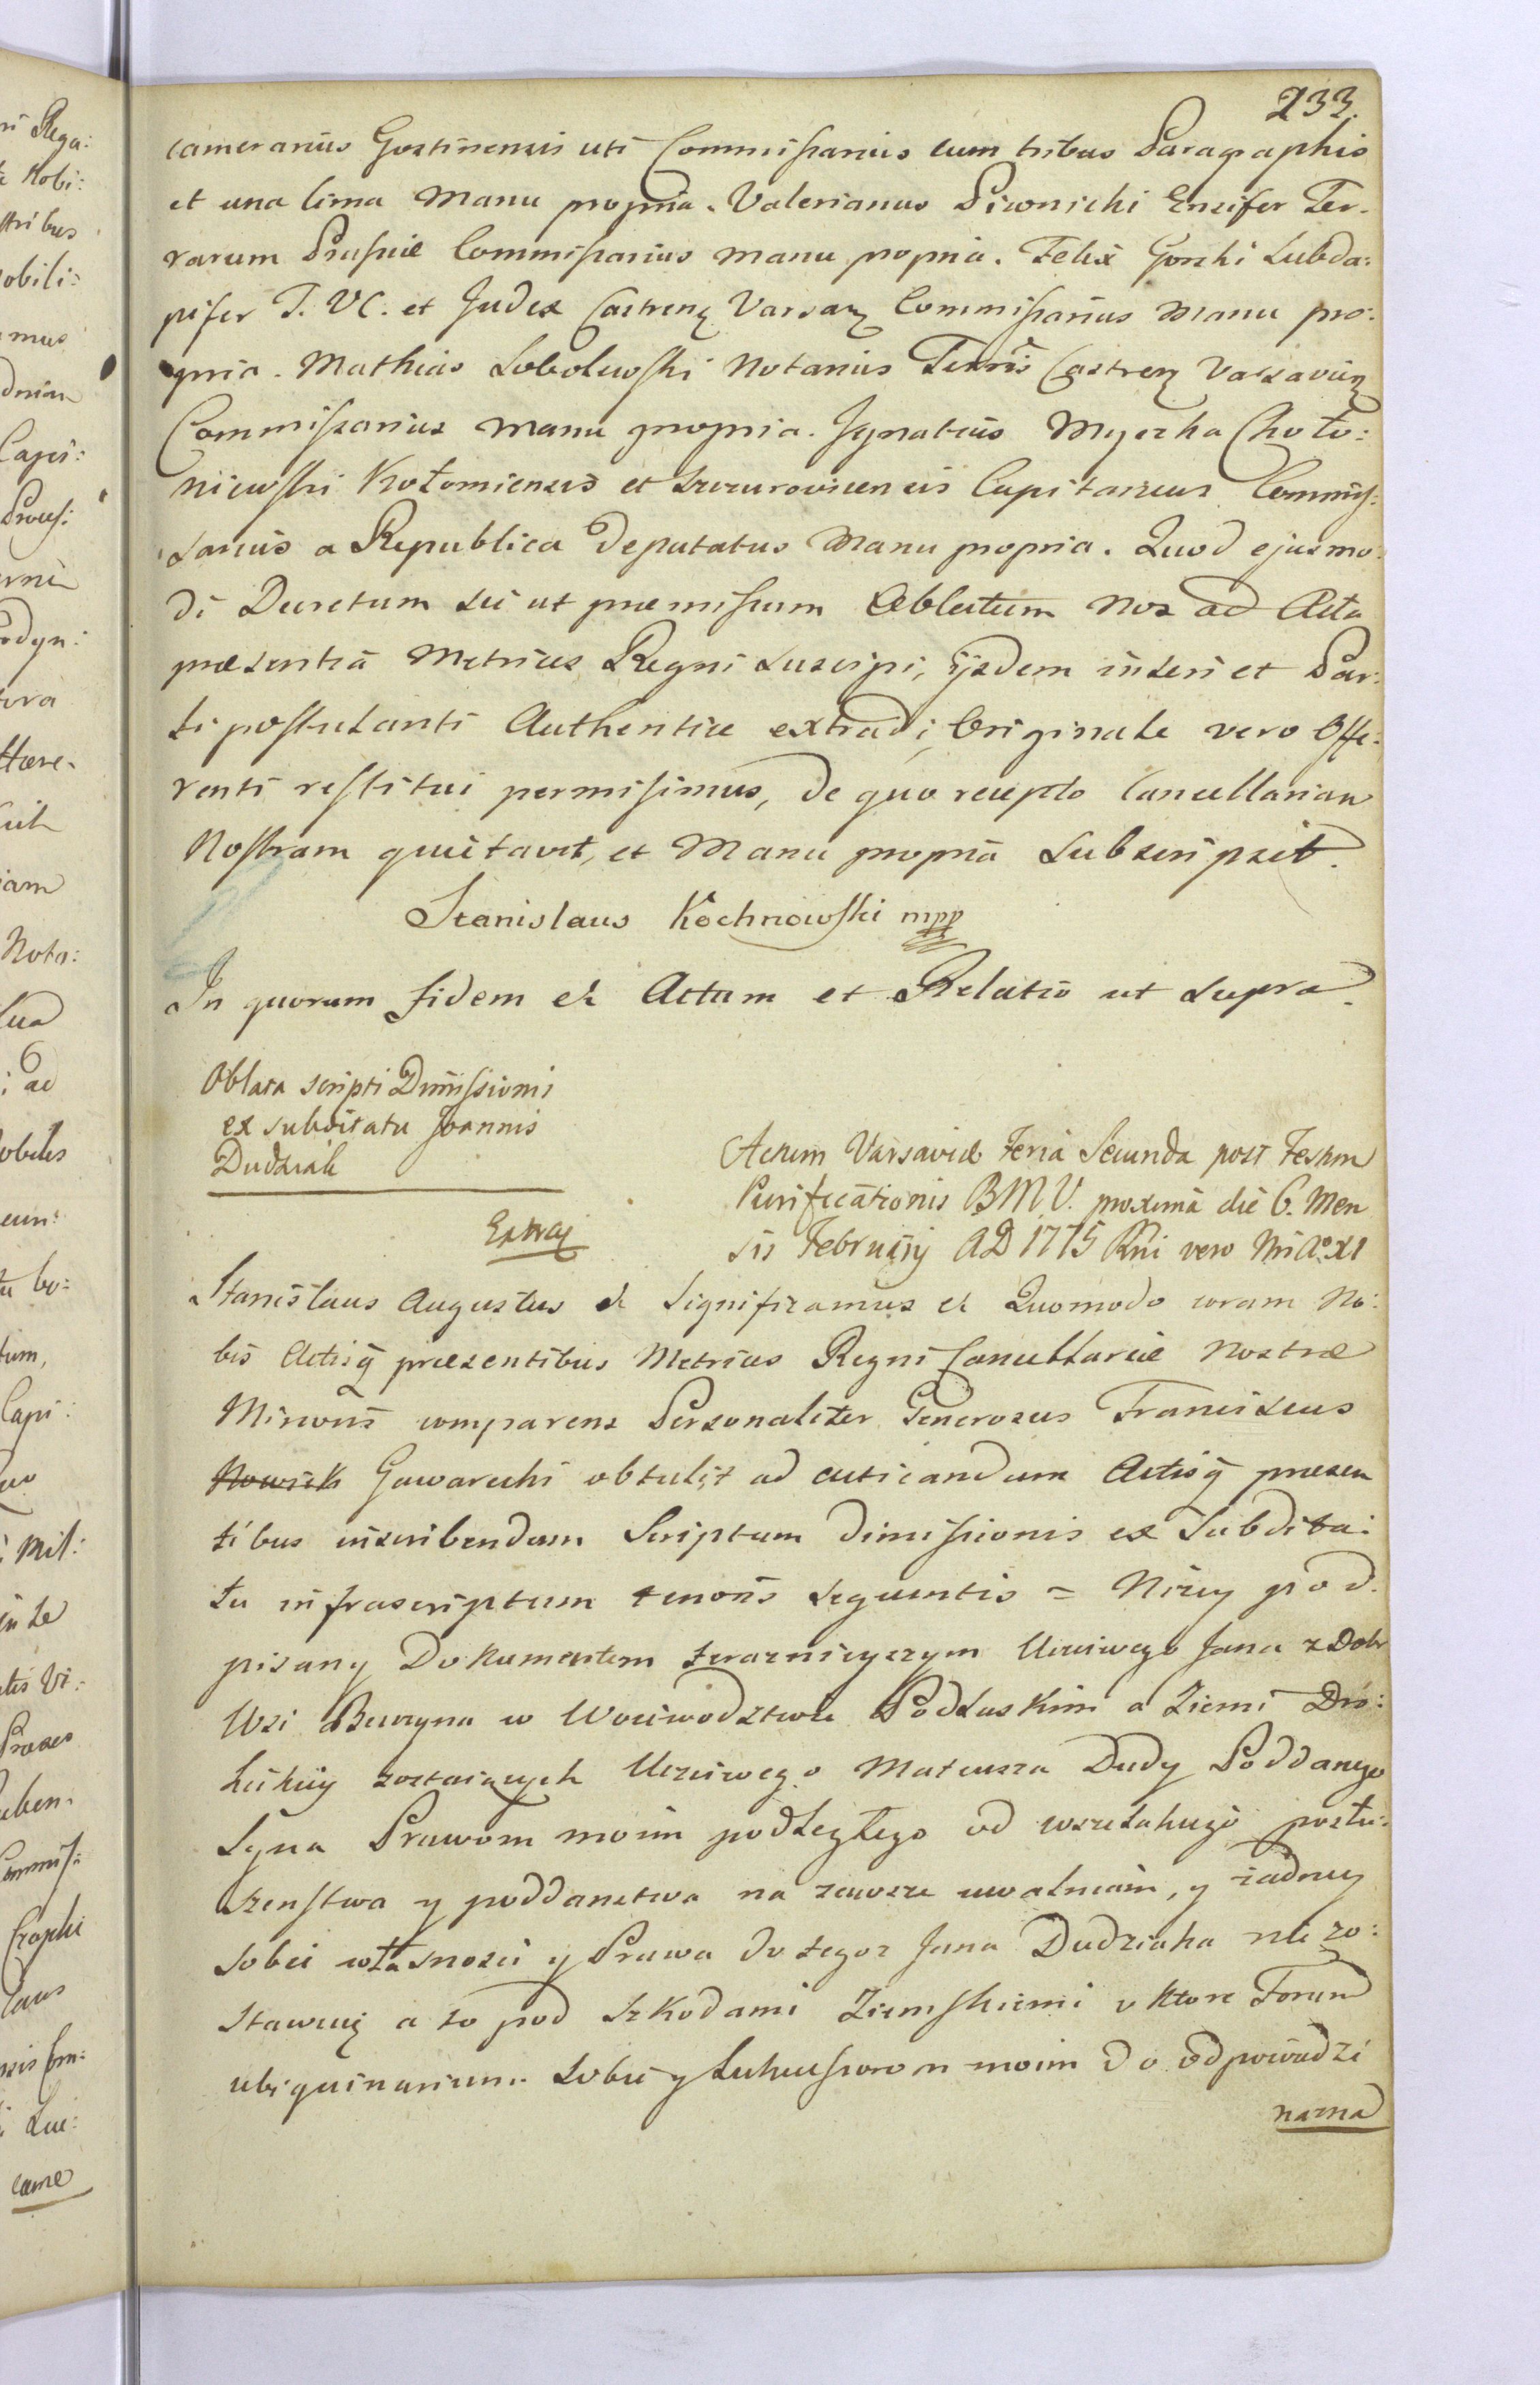 233.
camerarius Gostinensis uti Commissarius cum tribus Paragraphis
et una lima Manu propria. Valerianus Piwnicki Ensifer Ter-
rarum Prussiæ Commissarius manu propria. Felix Gorski Subda:
pifer T. VC. et Judex Castren Varsav Commissarius Manu pro:
pria. Mathias Sobolewski Notarius Terris Castren Varsavien
Commissarius manu propria. Ignatius Myszka Choło:
niewski Kołomiensis et Szczurovicensis Capitaneus Commis:
sarius a Republica Deputatus Manu propria. Quod ejusmo:
di Decretum sicut præmissum Oblatum Nos ad Acta
præsentia Metrices Regni suscipi, ijsdem inseri et Par:
ti postulanti Authentice extradi, Originale vero Offe:
renti restitui permisimus, de quo recepto Cancellariam
Nostram quietavit, et Manu propria subscripsit.
Stanislaus Kochnowski mpp
In quorum fidem et Actum et Relatio ut supra.
Oblata scripti Dimissionis
ex subditatu Joannis
Dudziak
Actum Varsaviæ Feria Secunda post Festum
Purificationis BMV. proxima die 6. Men
sis Februarij AD 1775 Rni vero Nri Aº XI
Stanislaus Augustus et Significamus et Quomodo coram No:
bis Actisq præsentibus Metrices Regni Cancellariæ Nostræ
Minoris comparens Personaliter Generosus Franciscus
Nowick Gawarecki obtulit ad acticandum Actisq præsen
tibus inscribendum Scriptum dimissionis ex Subdita:
tu infrascriptum tenoris sequentis = Niżey pod
pisany Dokumentem teraznieyszym Uczciwego Jana z Dobr
Wsi w Woiewodztwie Podlaskim a Ziemi Dro:
hickiey zostaiących Uczciwego Mateusza Dudy Poddanego
Syna Prawom moim podległego od wszelakiego posłu:
szenstwa y poddanstwa na zawsze uwalniam, y żadney
sobie własnosci y Prawa do tegoż Jana Dudziaka nie zo:
stawuię a to pod szkodami Ziemskiemi o ktore Forum
ubiquinarium sobie y Sukcessorom moim do odpowiedzi
nazna